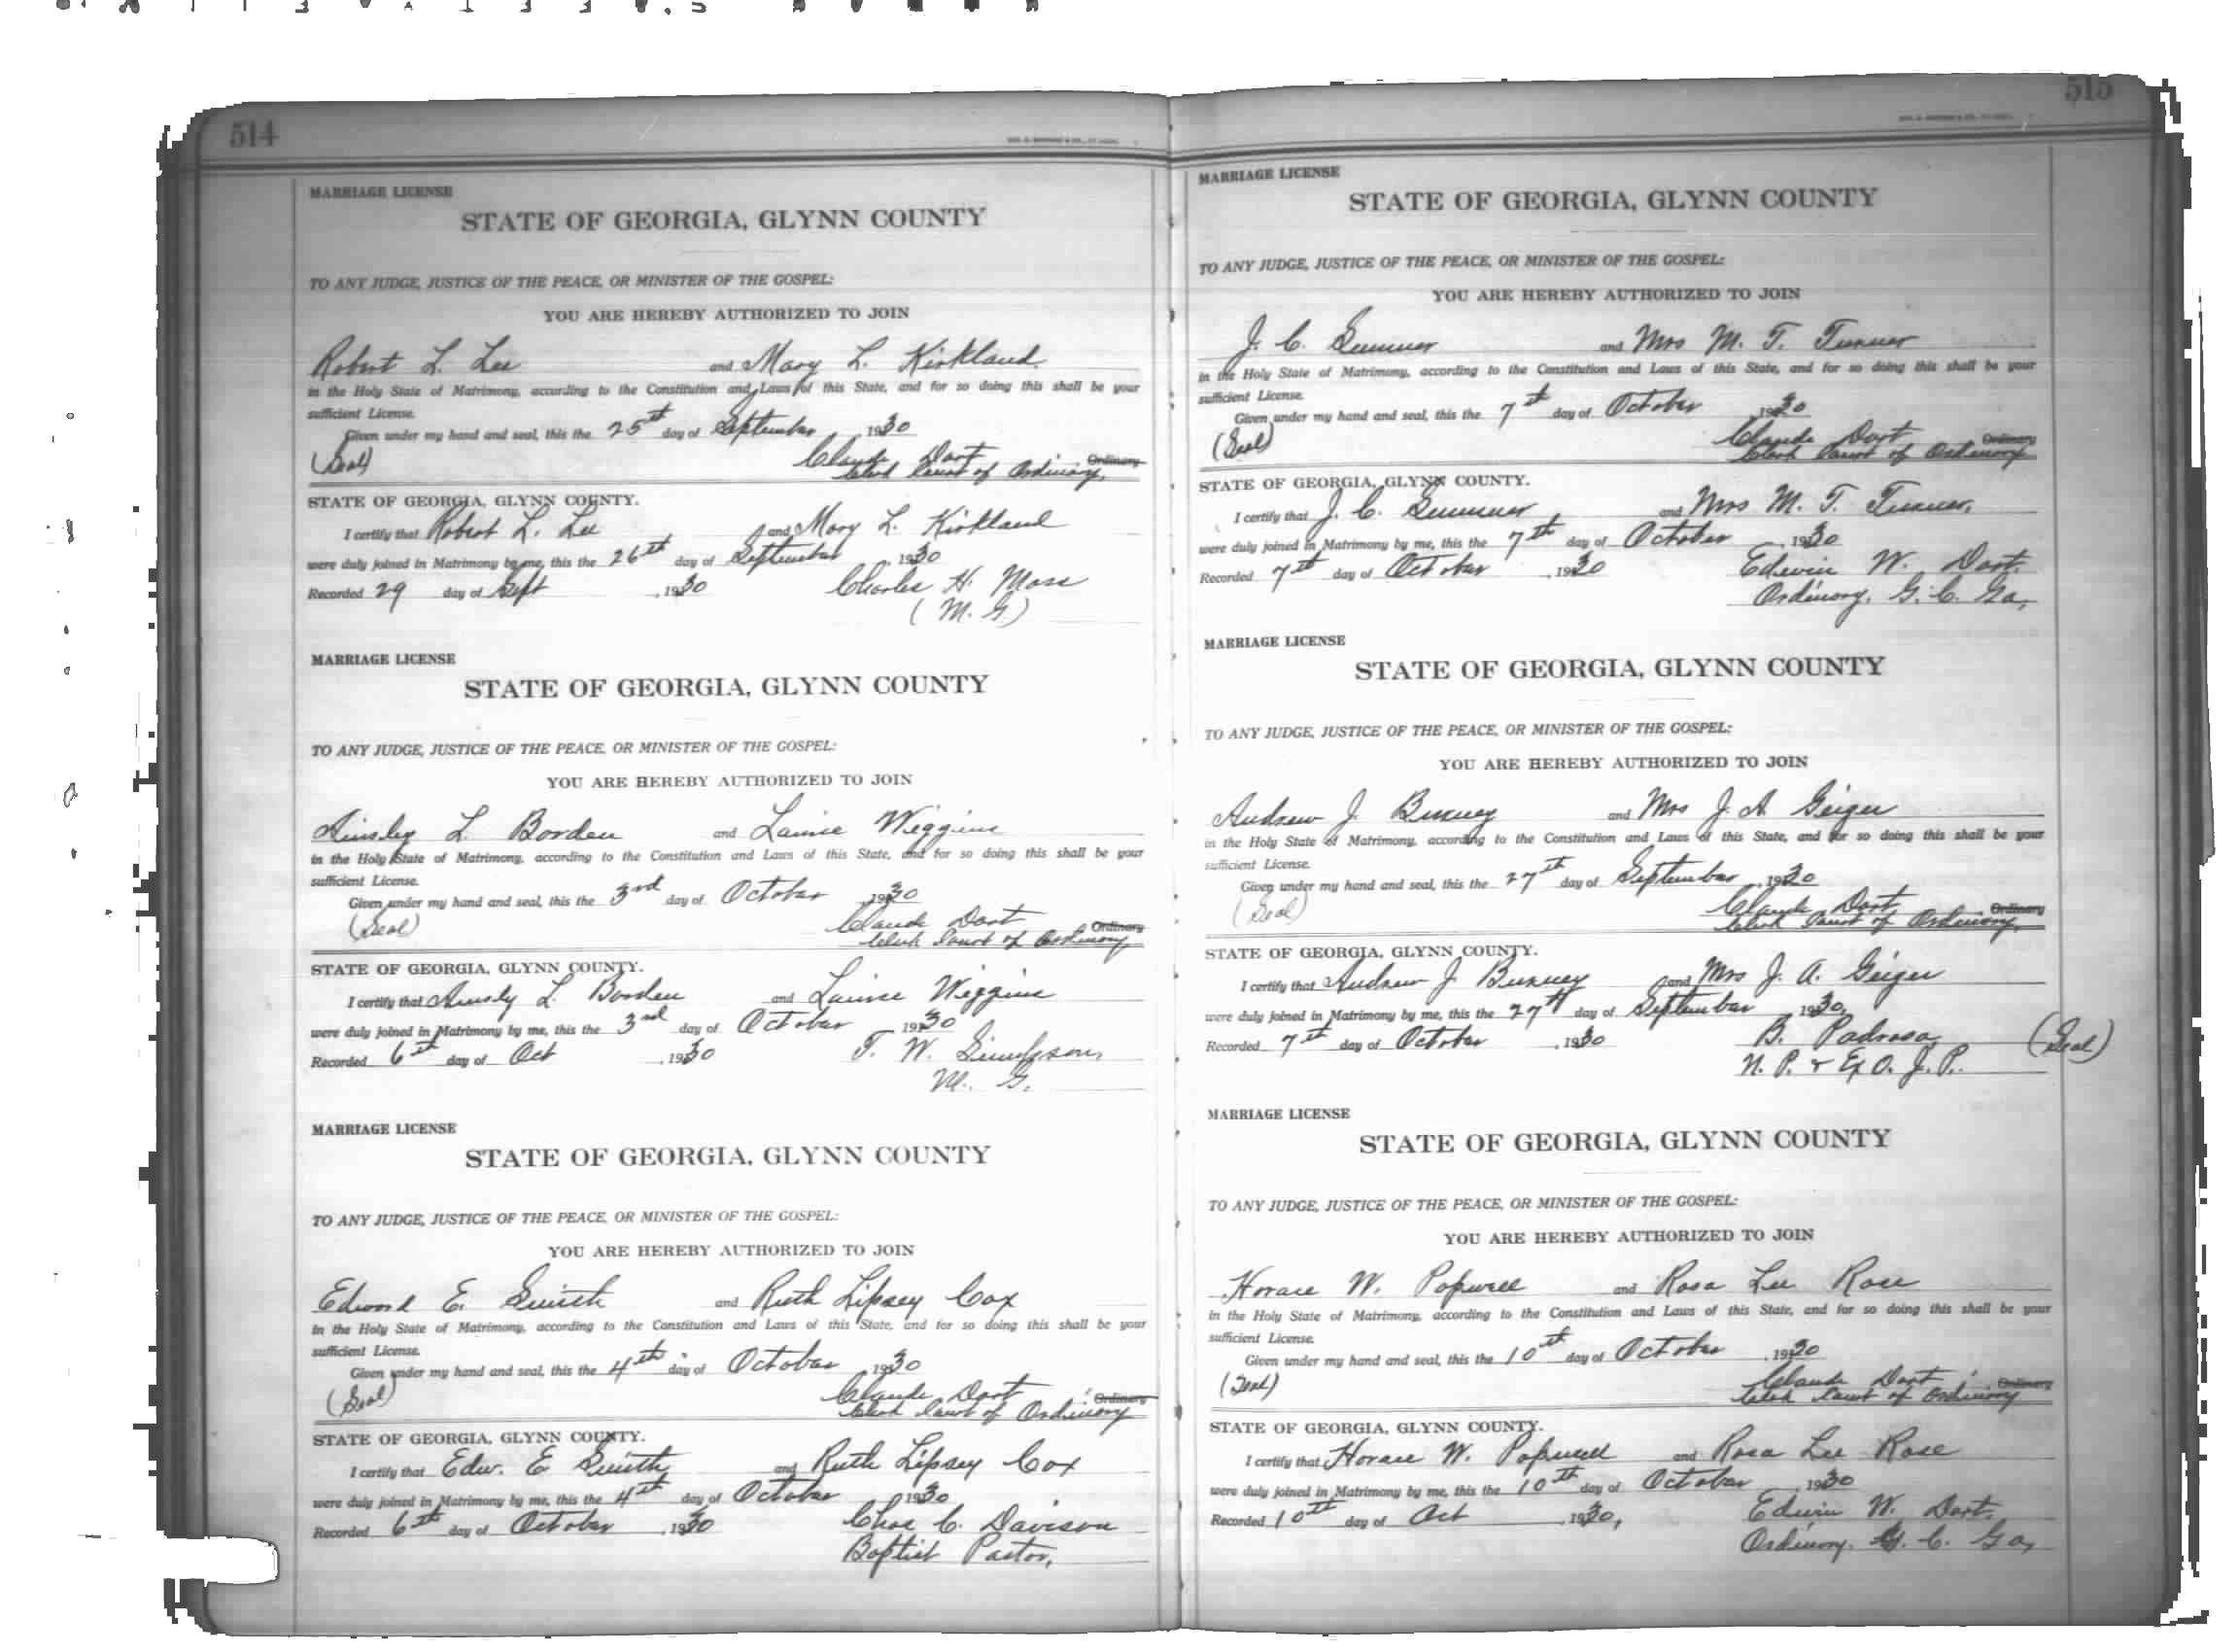 514
MARRIAGE LICENSE
STATE OF GEORGIA, GLYNN COUNTY
TO ANY JUDGE, JUSTICE OF THE PEACE, OR MINISTER OF THE GOSPEL:
YOU ARE HEREBY AUTHORIZED TO JOIN
Robert L. Lee and Mary L. Kirkland
in the Holy State of Matrimony, according to the Constitution and Laws of this State, and for so doing this shall be your
sufficient License.
Given under my hand and seal, this the 25th day of September 1930
(Seal) Claude Dart Ordinary
Clerk Court of Ordinary.
STATE OF GEORGIA, GLYNN COUNTY.
I certify that Robert L. Lee and Mary L. Kirkland
were duly joined in Matrimony by me, this the 26th day of September 1930
Recorded 29 day of Sept 1930 Charles H. Moss
(M. G.)
MARRIAGE LICENSE
STATE OF GEORGIA, GLYNN COUNTY
TO ANY JUDGE, JUSTICE OF THE PEACE, OR MINISTER OF THE GOSPEL:
YOU ARE HEREBY AUTHORIZED TO JOIN
Ainsley L. Borden and Wiggins
in the Holy State of Matrimony, according to the Constitution and Laws of this State, and for so doing this shall be your
sufficient License.
Given under my hand and seal, this the 3rd day of October 1930
(Seal) Claude Dart Ordinary
Clerk Court of Ordinary
STATE OF GEORGIA, GLYNN COUNTY.
I certify that Ainsly L. Borden and Wiggins
were duly joined in Matrimony by me, this the 3rd day of October 1930
Recorded 6th day of Oct 1930 T. W.
M. G.
MARRIAGE LICENSE
STATE OF GEORGIA, GLYNN COUNTY
TO ANY JUDGE, JUSTICE OF THE PEACE, OR MINISTER OF THE GOSPEL:
YOU ARE HEREBY AUTHORIZED TO JOIN
Edward E. Smith and Ruth Lipsey Cox
in the Holy State of Matrimony, according to the Constitution and Laws of this State, and for so doing this shall be your
sufficient License.
Given under my hand and seal, this the 4th day of October 1930
(Seal) Claude Dart Ordinary
Clerk Court of Ordinary
STATE OF GEORGIA, GLYNN COUNTY.
I certify that Edw. E Smith and Ruth Lipsey Cox
were duly joined in Matrimony by me, this the 4th day of October 1930
Recorded 6th day of October 1930 Chas C. Davison
Baptist Pastor.
515
MARRIAGE LICENSE
STATE OF GEORGIA, GLYNN COUNTY
TO ANY JUDGE, JUSTICE OF THE PEACE, OR MINISTER OF THE GOSPEL:
YOU ARE HEREBY AUTHORIZED TO JOIN
J. C. Sumner and Mrs M. T. Turner
in the Holy State of Matrimony, according to the Constitution and Laws of this State, and for so doing this shall be your
sufficient License.
Given under my hand and seal, this the 7th day of October 1930
(Seal) Claude Dart Ordinary
Clerk Court of Ordinary
STATE OF GEORGIA, GLYNN COUNTY.
I certify that J. C. Sumner and Mrs M. T. Turner,
were duly joined in Matrimony by me, this the 7th day of October 1930
Recorded 7th day of October 1930 Edwin W. Dart.
Ordinary. G. C. Ga,
MARRIAGE LICENSE
STATE OF GEORGIA, GLYNN COUNTY
TO ANY JUDGE, JUSTICE OF THE PEACE, OR MINISTER OF THE GOSPEL:
YOU ARE HEREBY AUTHORIZED TO JOIN
Andrew J. Burney and Mrs J. A Geiger
in the Holy State of Matrimony, according to the Constitution and Laws of this State, and for so doing this shall be your
sufficient License.
Given under my hand and seal, this the 27th day of September 1930
(Seal) Claude Dart Ordinary
Clerk Court of Ordinary.
STATE OF GEORGIA, GLYNN COUNTY.
I certify that Andrew J. Burney and Mrs J. A. Geiger
were duly joined in Matrimony by me, this the 27th day of September 1930.
Recorded 7th day of October 1930 B. Padrosa (Seal)
N. P. & Ex O. J. P.
MARRIAGE LICENSE
STATE OF GEORGIA, GLYNN COUNTY
TO ANY JUDGE, JUSTICE OF THE PEACE, OR MINISTER OF THE GOSPEL:
YOU ARE HEREBY AUTHORIZED TO JOIN
Horace W. Popwell and Rosa Lee Rose
in the Holy State of Matrimony, according to the Constitution and Laws of this State, and for so doing this shall be your
sufficient License.
Given under my hand and seal, this the 10th day of October 1930
(Seal) Claude Dart Ordinary
Clerk Court of Ordinary
STATE OF GEORGIA, GLYNN COUNTY.
I certify that Horace W. Popwell and Rosa Lee Rose
were duly joined in Matrimony by me, this the 10th day of October 1930
Recorded 10th day of Oct 1930, Edwin W. Dart.
Ordinary. G. C. Ga,